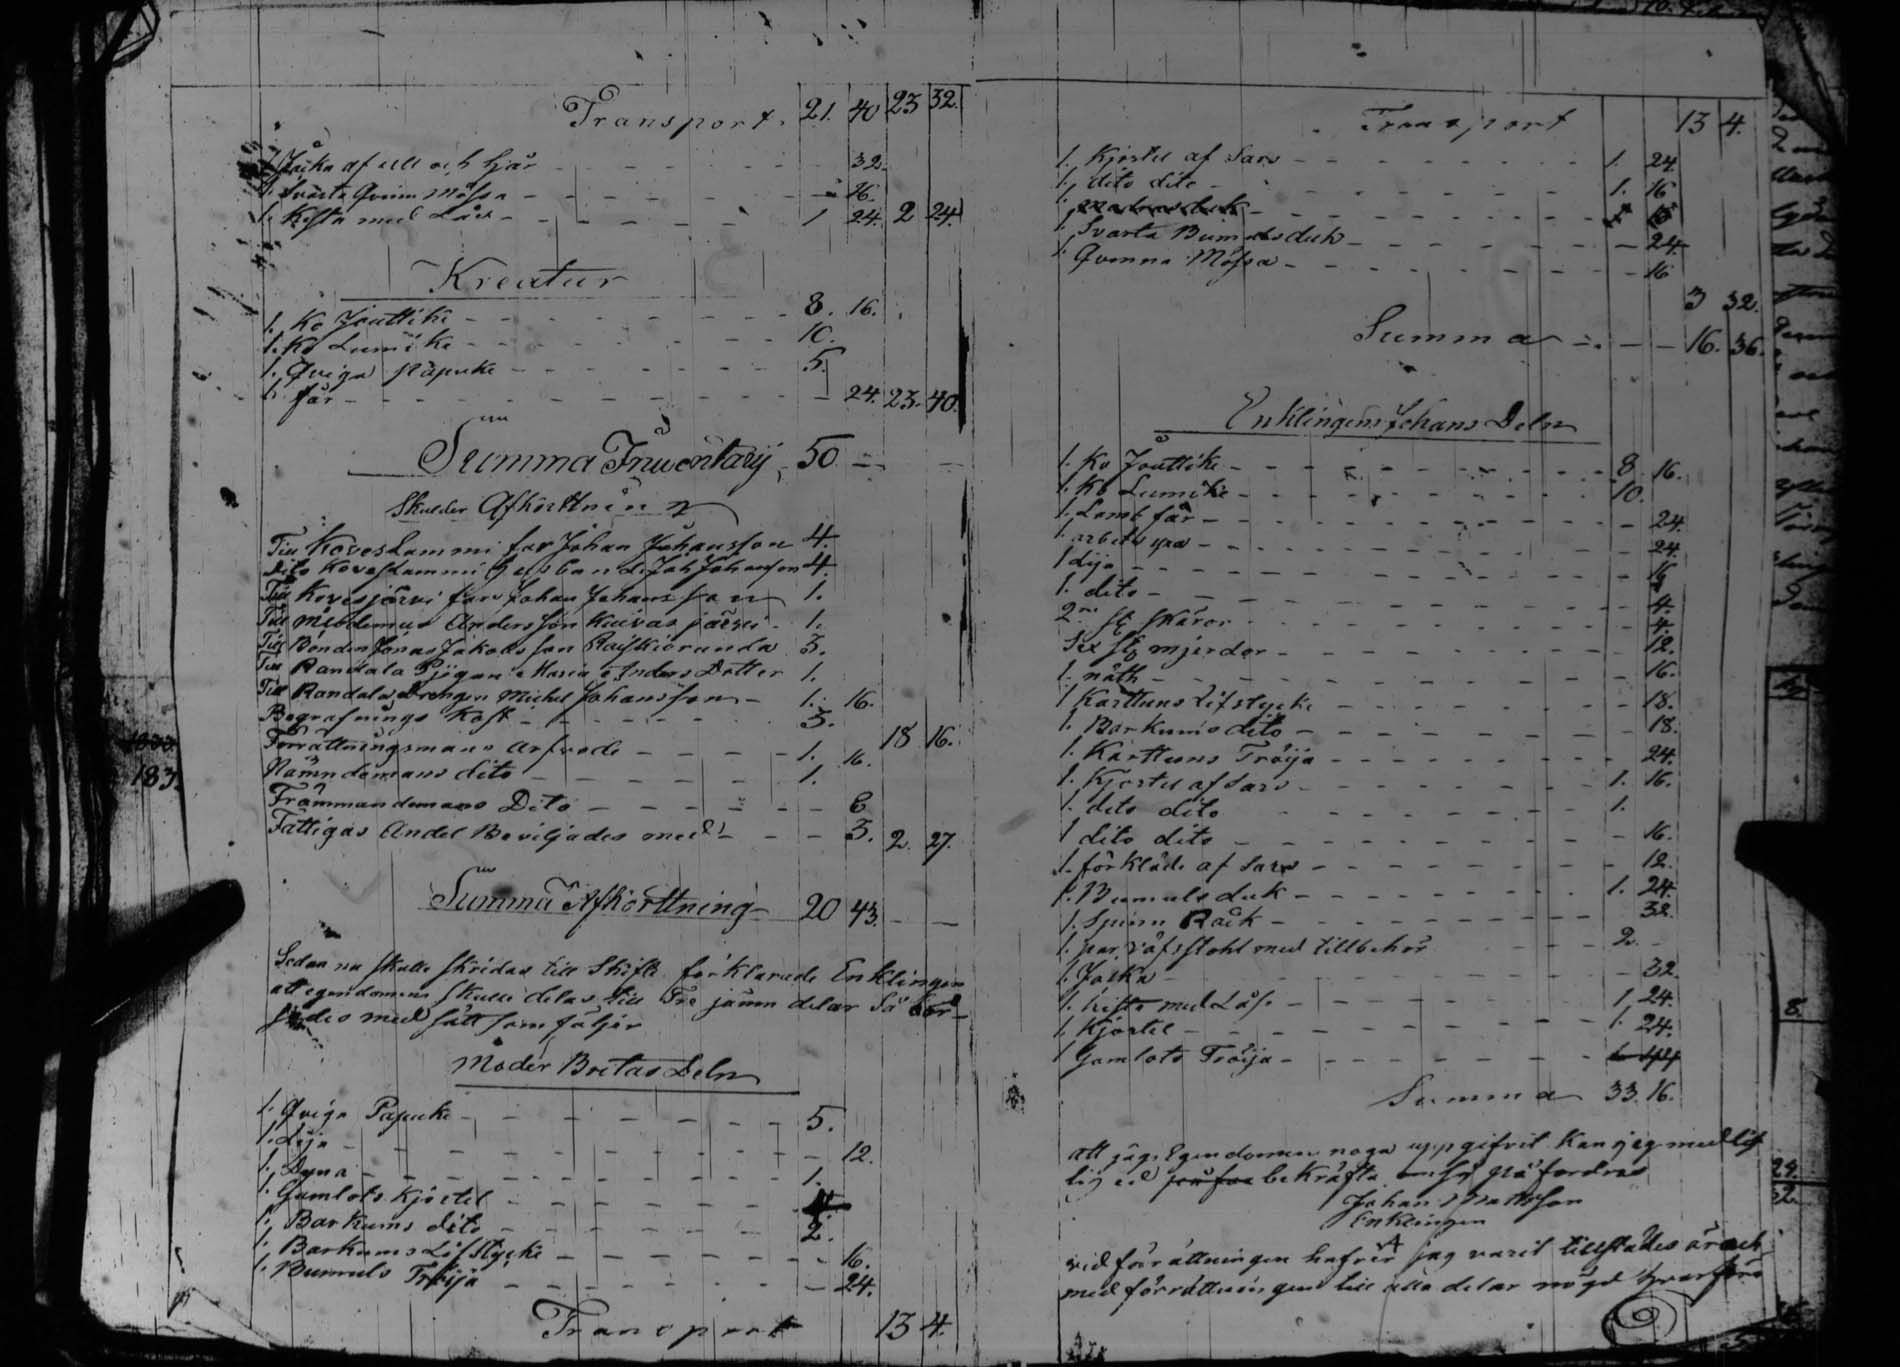 Transport. 21. 40 23 32.
1. Jacka af ull och hjär - - - 32.
1. Svarta Qvinn Mössa - - - 16.
1. Kista med Lås - - - 1 24. 2 24.
Kreatur
1. Ko Jouttike - - - 8. 16.
1. Ko Lumike - - - 10.
1. Qviga Papuke - - - 5.
1. får - - - 24. 23. 40.
Summa Inventarij 50 - -
Skulder Afkorttning
Till Koveslammi far Johan Johansson 4.
Dito Koveslammi Joh Johansson 4.
Till Kovesjärvi far Johan Johansson 1.
Till Andersson Kuivasjärvi 1.
Till Bonden Jonas Jakobsson 3.
Till Randala Pigan Maria Anders Dotter 1.
Till Randala Drengen Michel Johansson - 1. 16.
Begrafnings Kost - - - 3. 18 16.
Förrättningsmans arfvode - - - 1. 16.
Nämndemans dito - - - 1.
Främmandemans Dito - - - 6
Fattigas Andel Beviljades med - - - 3. 2. 27.
Summa Afkorttning - 20 43. - -
1833.
183.
Sedan nu skulle skridas till Skifte förklarade Enklingen
att egendomen skulle delas till Tre jämn delar Så
med sätt som följer
Moder Britas Deln
1. Qviga Papuke - - - 5.
1. Lija - - - 12.
1. Dyna - - - 1.
1. Gamlots Kjortel - - - 4.
1. Barkums dito - - - 2.
1. Barkums Lifstycke - - - 16.
1. Bumuls Tröija - - - 24.
Transport 13 4.
Transport 13 4.
1. Kjortel af Sars - - - 1. 24.
1. dito dito - - - 1. 16
1. Svarta Bumulsduk - - - 24.
1. Qvinns Mössa - - - 16
3 32.
Summa - - - 16. 36.
Enklingens Johans Deln
1. Ko Jouttike - - - 8 16.
1. Ko Lumike - - - 10.
1. Lamb får - - - 24.
1. arbets - - - 24.
1 Lija - - - 16
1. dito - - - 4.
2ne st skäror - - - 4.
Sex st mjerdor - - - 12.
1. näth - - - 16.
1 Karttuns Lifstycke - - - 18.
1. Barkums dito - - - 18.
1. Karttuns Tröija - - - 24.
1. Kjortel af Sars - - - 1. 16.
1. dito dito - - - 1.
1 dito dito - - - 16.
1. förkläde af Sars - - - 12.
1. Bumuls duk - - - 1. 24.
1. Spinn Råck - - - 32.
1. par väfsstohl med tillbehör - - - 2.
1. Jacka - - - 32.
1. kista med Lås - - - 1 24.
1. Kjortel - - - 1. 24.
1 Gamlots Tröija - - -
Summa 33. 16.
att jag Egendomen noga uppgifvit kan jag med lif
lig ed bekräfta om så på fordras
Johan Mattsson
Enklingen
vid förrättningen hafver jag varit tillstädes är och
med förrättningen till alla delar nöijd hvarföre